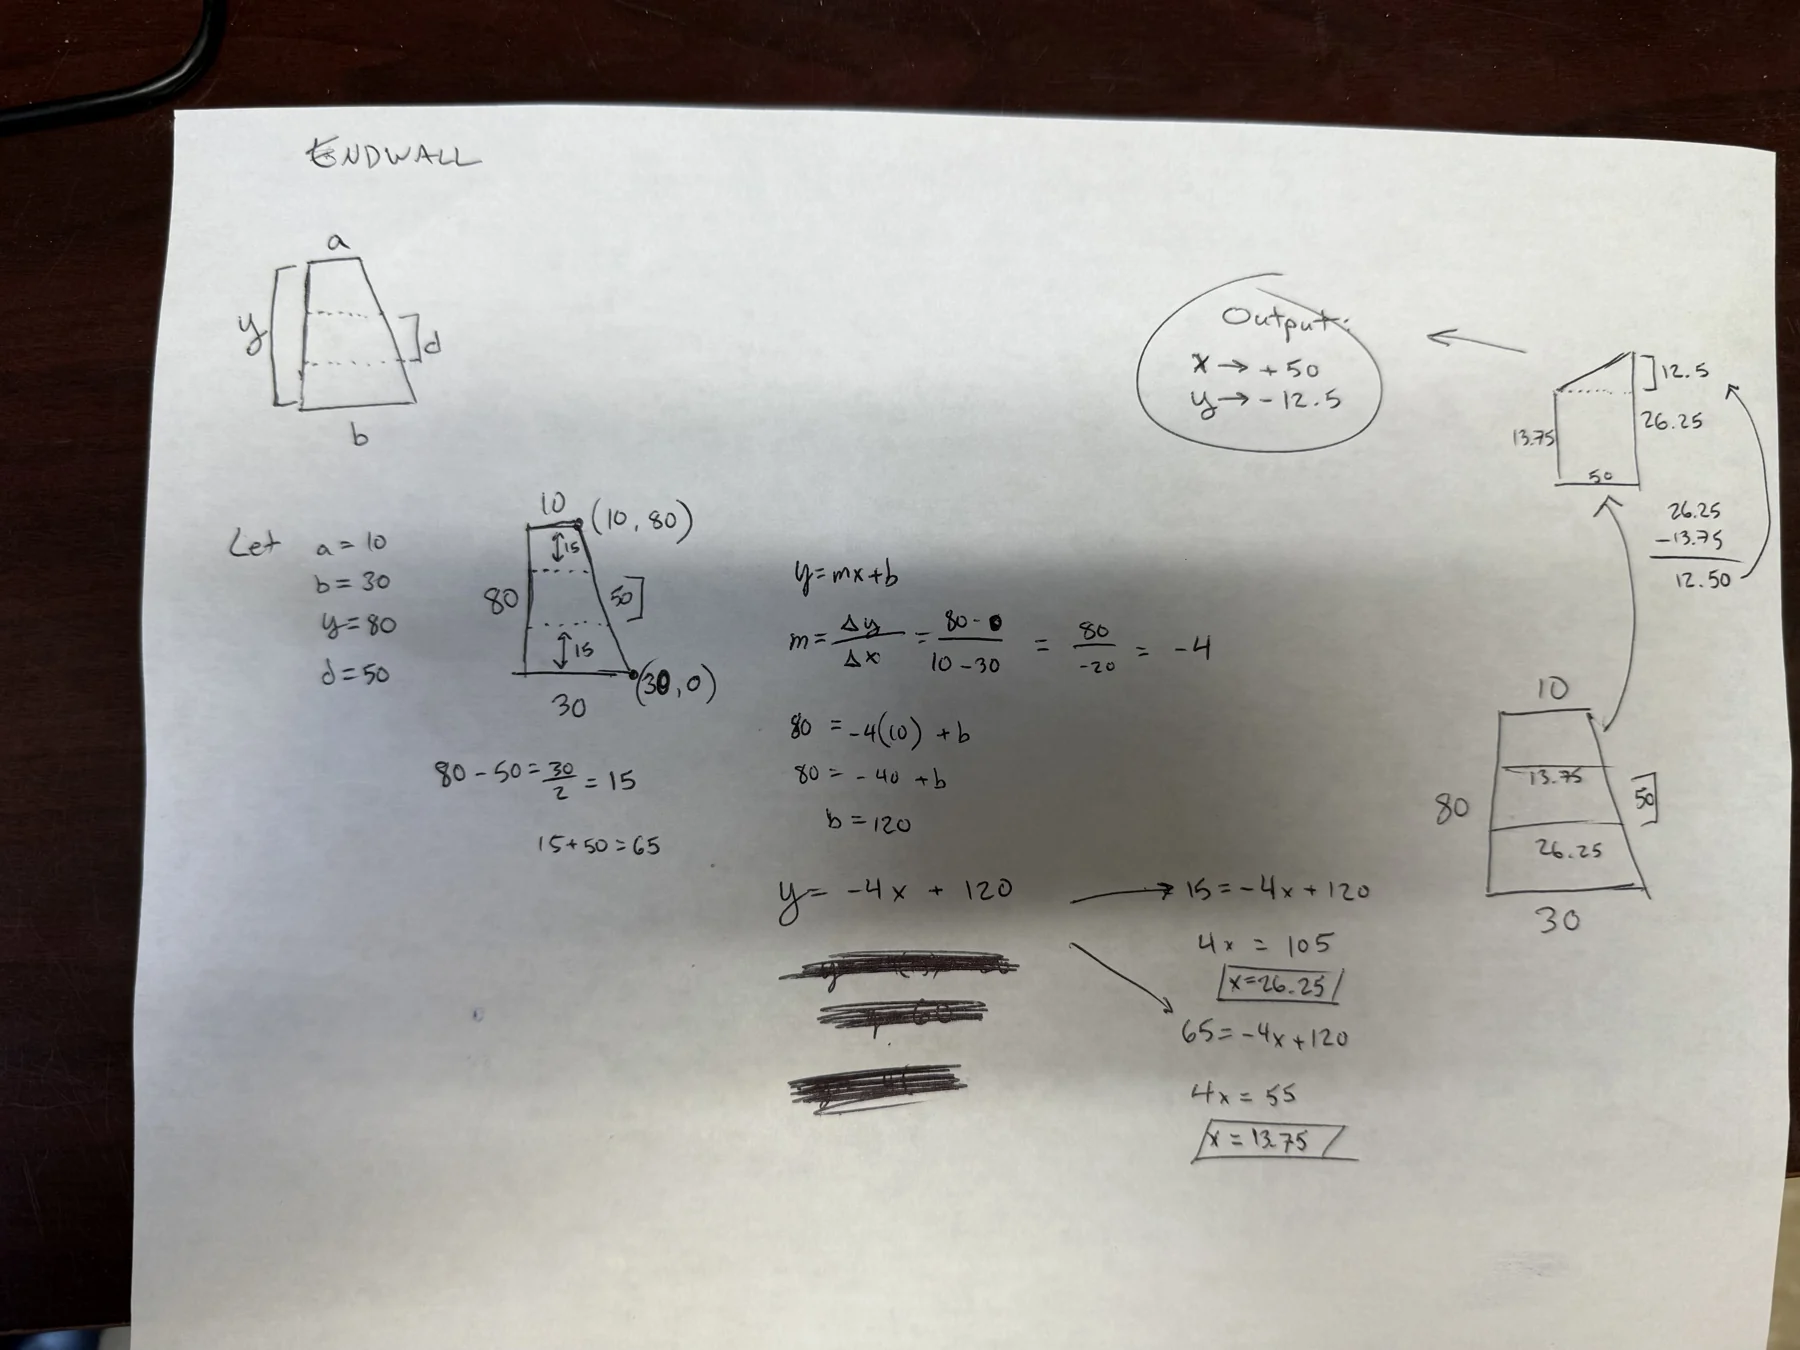 ENDWALL
a
y
d
b
Let a = 10
b = 30
y = 80
d = 50
10
(10, 80)
15
80
50
15
(30, 0)
30
80 - 50 = 30/2 = 15
15 + 50 = 65
y = mx + b
m = Δy/Δx = 80 - 0/10 - 30 = 80/-20 = -4
80 = -4(10) + b
80 = -40 + b
b = 120
y = -4x + 120
15 = -4x + 120
4x = 105
x = 26.25
65 = -4x + 120
4x = 55
x = 13.75
10
13.75
80
50
26.25
30
12.5
13.75
26.25
50
26.25
-13.75
12.50
Output:
x → +50
y → -12.5